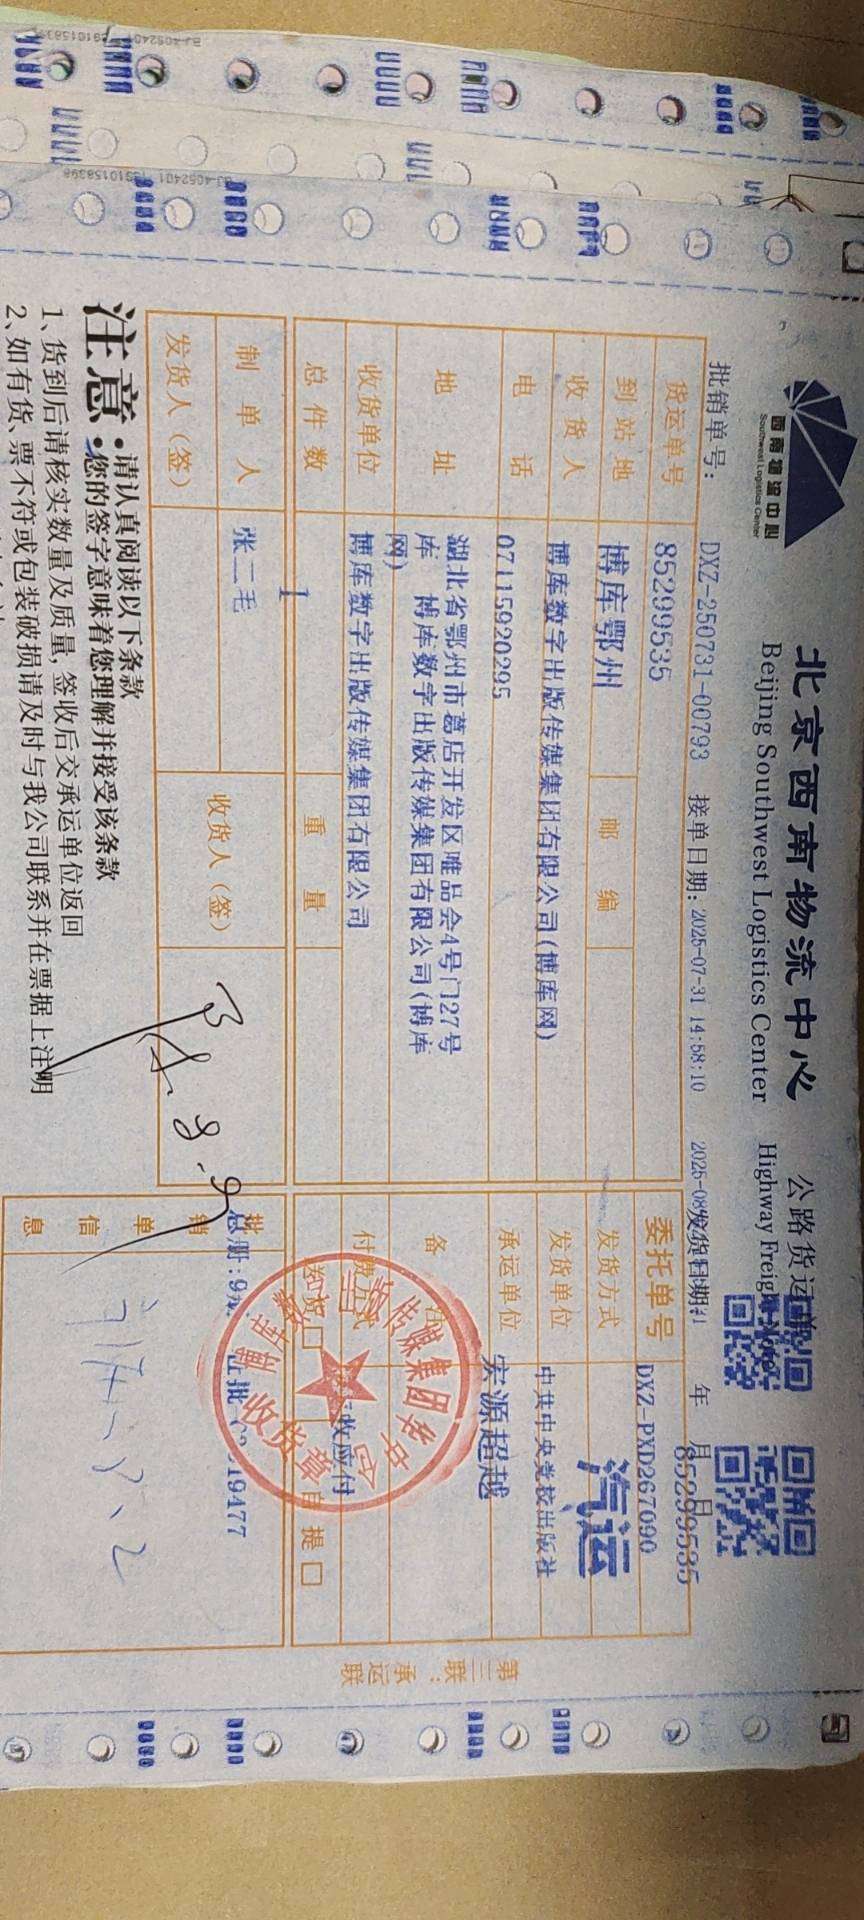 西南物流中心
Southwest Logistics Center
北京西南物流中心 公路货运单
Beijing Southwest Logistics Center Highway Freight Note
批销单号: DXZ-250731-00793 接单日期: 2025-07-31 14:58:10 发货日期: 年 月 日
85299535
货运单号 85299535 委托单号 DXZ-PXD267090
到站地 博库鄂州 邮编 发货方式 汽运
收货人 博库数字出版传媒集团有限公司(博库网) 发货单位 中共中央党校出版社
电话 07115920295 承运单位 宏源超越
地址 湖北省鄂州市葛店开发区唯品会4号门27号
库 博库数字出版传媒集团有限公司(博库
网)
备注
收货单位 博库数字出版传媒集团有限公司 付费方式
总件数 1 重量 自提□
制单人 张二毛 收货人(签)
发货人(签)
批销单信息
总册:9
19477
收货章
第三联:承运联
注意
·请认真阅读以下条款
·您的签字意味着您理解并接受该条款
1、货到后请核实数量及质量,签收后交承运单位返回
2、如有货、票不符或包装破损请及时与我公司联系并在票据上注明
8.9
BJ-4052401 13910158398